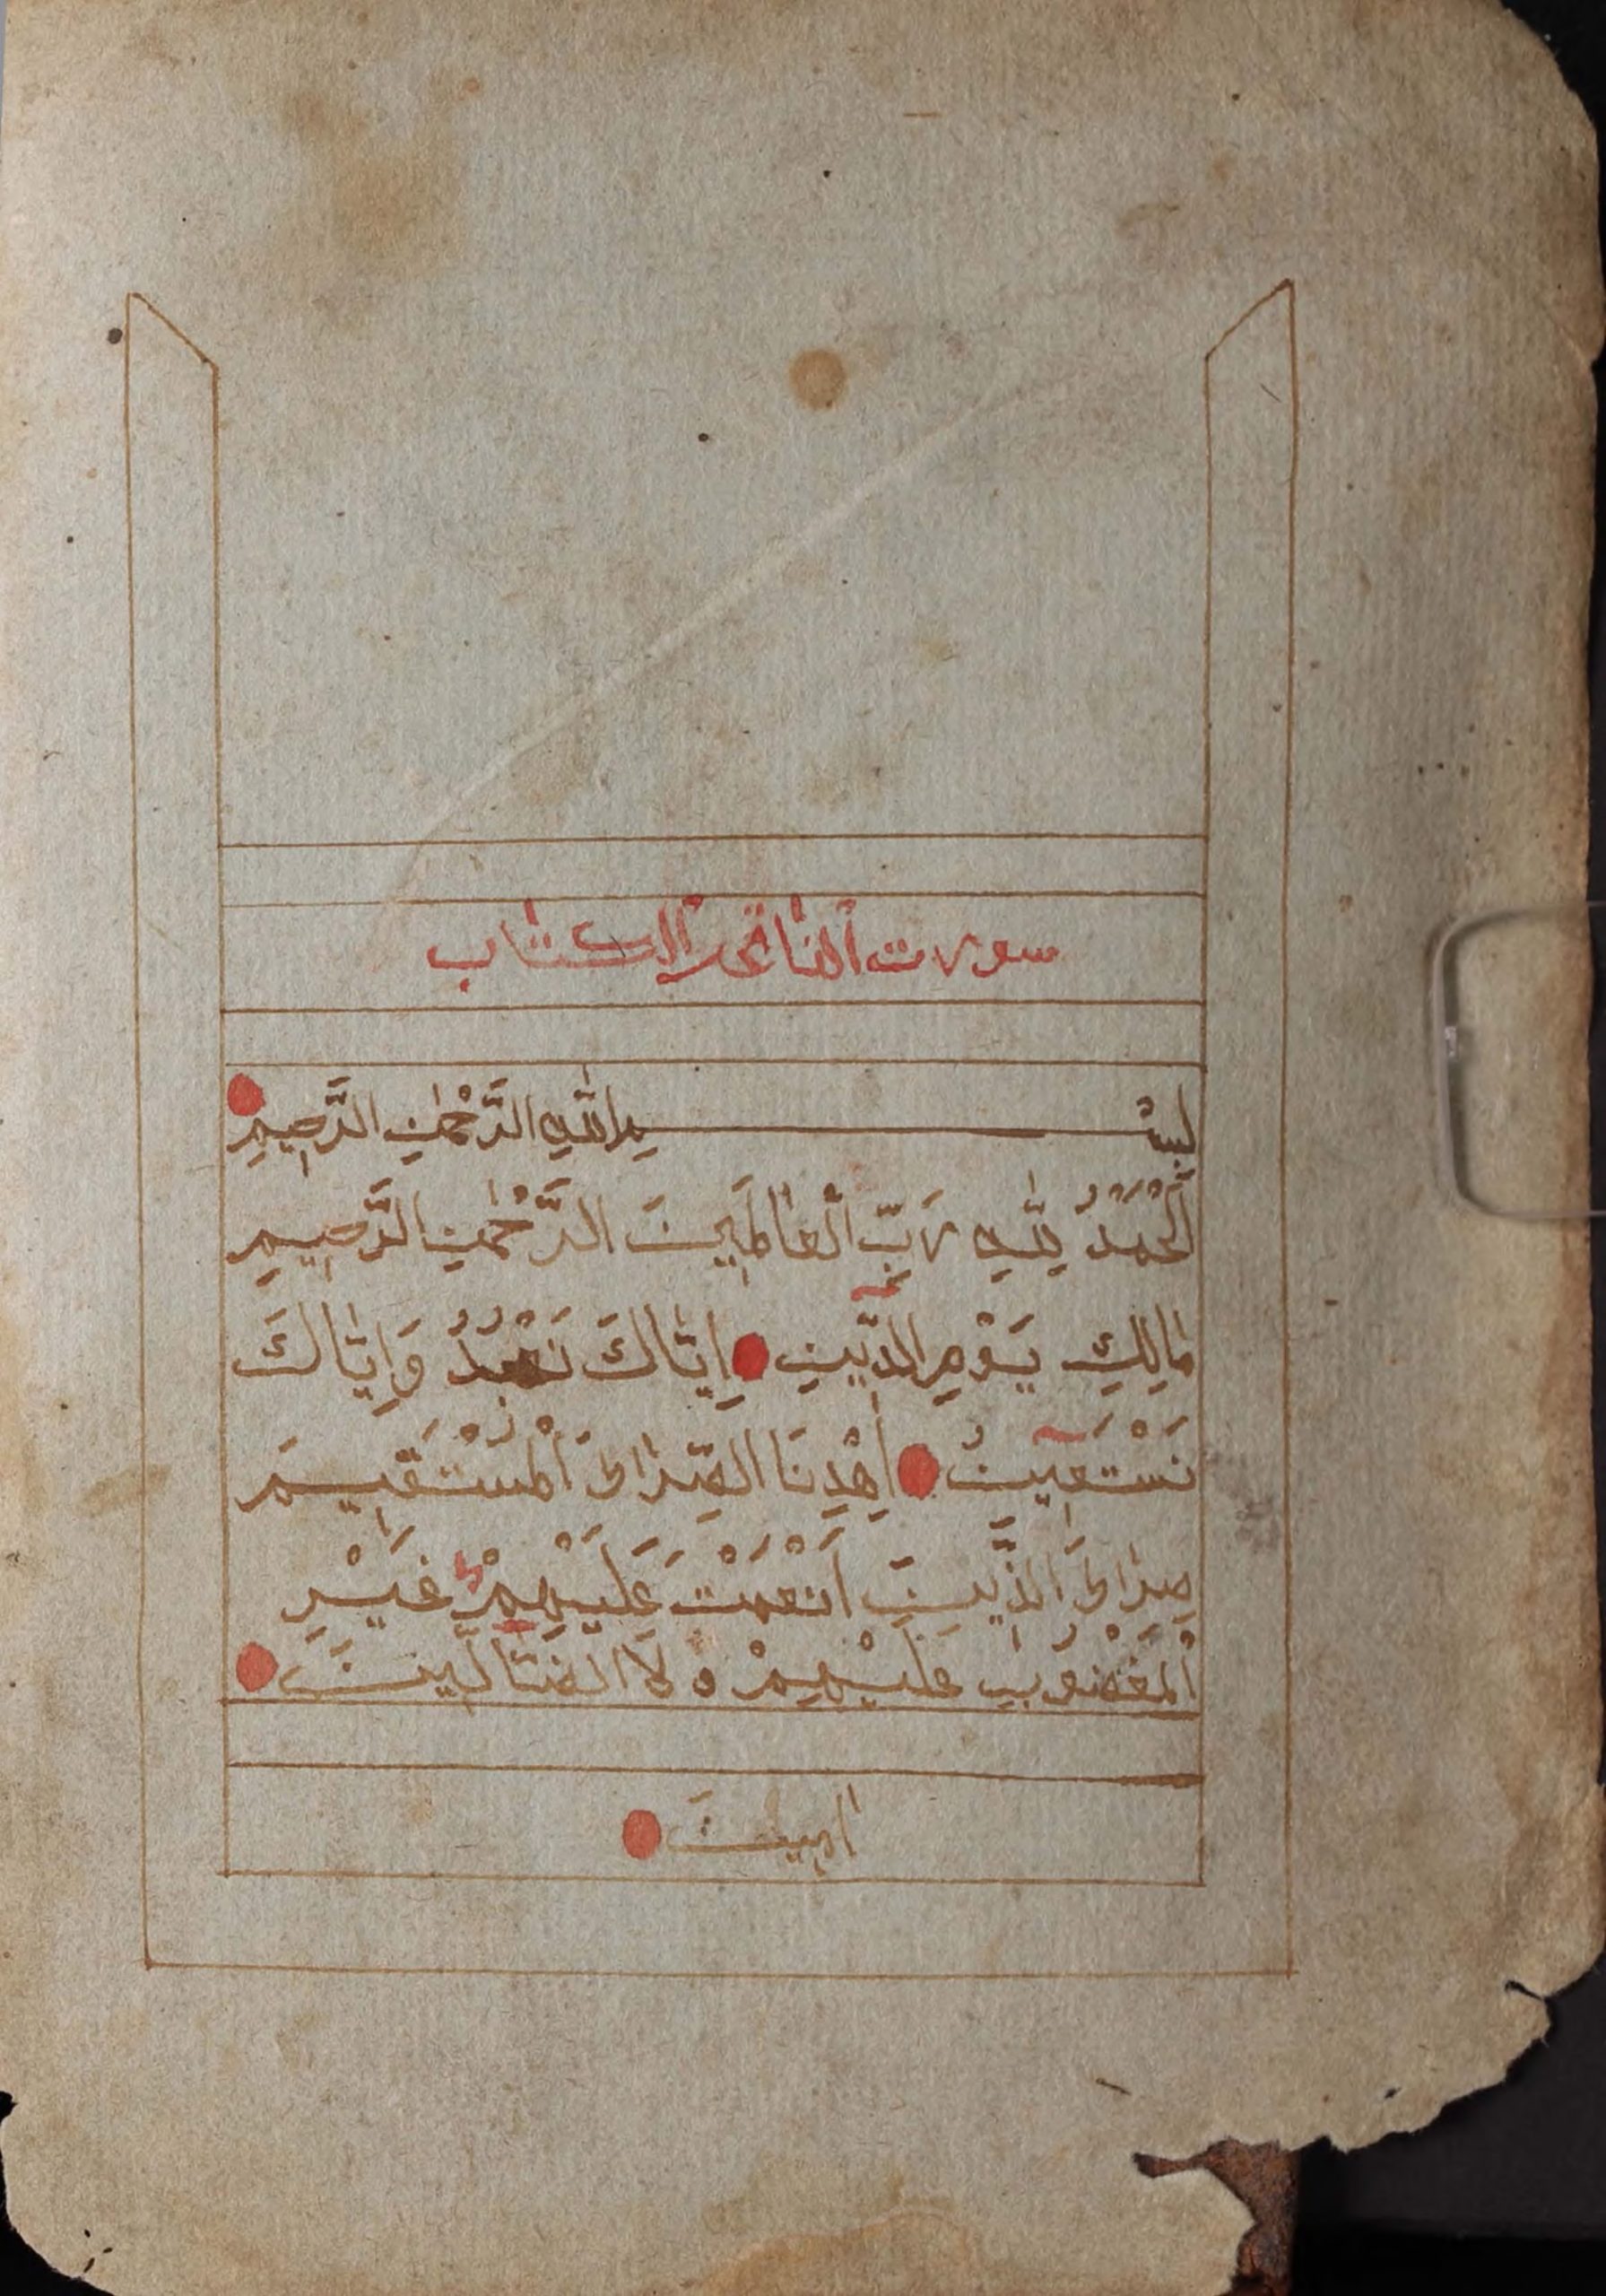 سورت الفاتحة الكتاب
بِسْمِ اللّٰهِ الرَّحْمٰنِ الرَّحِيمِ
اَلْحَمْدُ لِلّٰهِ رَبِّ الْعَالَمِينَ الرَّحْمٰنِ الرَّحِيمِ
مَالِكِ يَوْمِ الدِّينِ اِيَّاكَ نَعْبُدُ وَاِيَّاكَ
نَسْتَعِينُ اِهْدِنَا الصِّرَاطَ الْمُسْتَقِيمَ
صِرَاطَ الَّذِينَ اَنْعَمْتَ عَلَيْهِمْ غَيْرِ
الْمَغْضُوبِ عَلَيْهِمْ وَلَا الضَّالِّينَ
اٰمِينَ